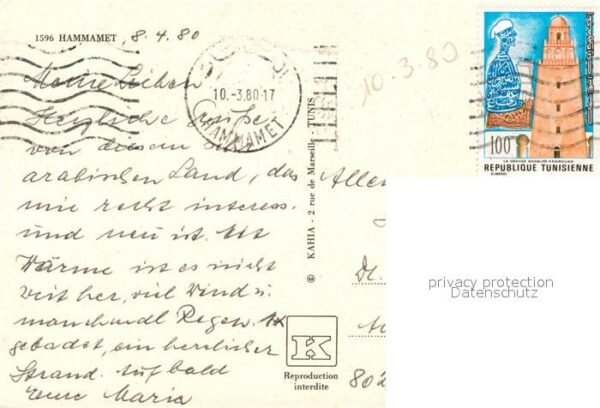 1596 HAMMAMET 8.4.80
10.-3.80.17
HAMMAMET
10.3.80
Meine Lieben
Herzliche Grüße
von diesem
arabischen Land, das
mir recht interess.
und neu ist. Mit
Wärme ist es nicht
weit her, viel Wind u.
manchmal Regen.
gebadet, ein herrlicher
Strand. Auf bald
Eure Maria
© KAHIA - 2 rue de Marseille - TUNIS
K
Reproduction
interdite
100
LA GRANDE MOSQUÉE KAIROUAN
REPUBLIQUE TUNISIENNE
privacy protection
Datenschutz
802